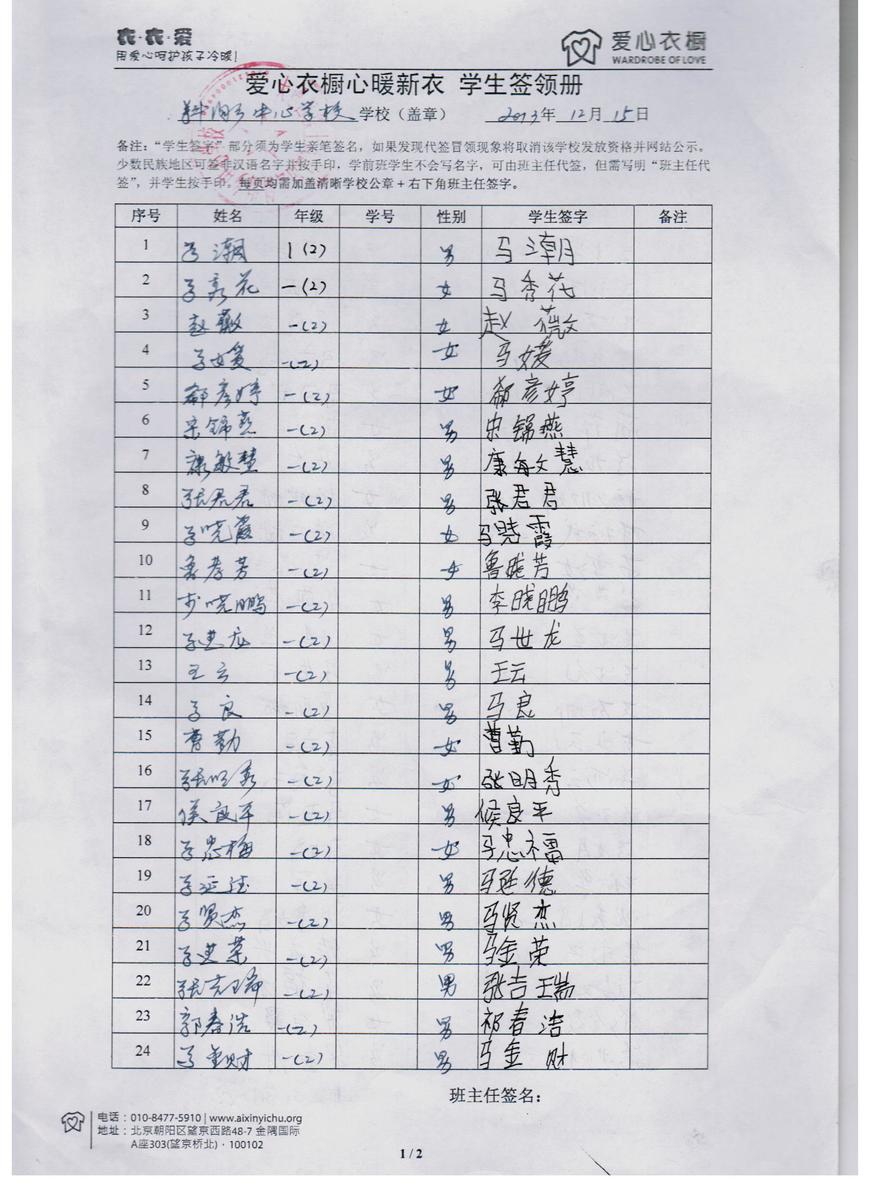 衣·衣·爱
用爱心呵护孩子冷暖!
爱心衣橱
WARDROBE OF LOVE
爱心衣橱心暖新衣 学生签领册
中心学校 学校（盖章） 2013年 12月 15日
备注：“学生签字”部分须为学生亲笔签名，如果发现代签冒领现象将取消该学校发放资格并网站公示。
少数民族地区可签非汉语名字并按手印，学前班学生不会写名字，可由班主任代签，但需写明“班主任代
签”，并学生按手印。每页均需加盖清晰学校公章+右下角班主任签字。
序号 姓名 年级 学号 性别 学生签字 备注
1 马潮 1(2) 男 马潮
2 马秀花 一(2) 女 马秀花
3 赵薇 一(2) 女 赵薇
4 马媛 一(2) 女 马媛
5 郗彦婷 一(2) 女 郗彦婷
6 宋锦燕 一(2) 男 宋锦燕
7 康敏慧 一(2) 男 康敏慧
8 张君君 一(2) 男 张君君
9 马晓霞 一(2) 女 马晓霞
10 鲁孝芳 一(2) 女 鲁 芳
11 李晓鹏 一(2) 男 李晓鹏
12 马世龙 一(2) 男 马世龙
13 王云 一(2) 男 王云
14 马良 一(2) 男 马良
15 曹勤 一(2) 女 曹勤
16 张明秀 一(2) 女 张明秀
17 侯良平 一(2) 男 候良平
18 马忠梅 一(2) 女 马忠福
19 马延德 一(2) 男 马延德
20 马贤杰 一(2) 男 马贤杰
21 马 荣 一(2) 男 马金荣
22 张吉瑞 一(2) 男 张吉瑞
23 郭春浩 一(2) 男 祁春浩
24 马金财 一(2) 男 马金财
班主任签名：
电话：010-8477-5910 | www.aixinyichu.org
地址：北京朝阳区望京西路48-7 金隅国际
A座303(望京桥北)·100102
1 / 2